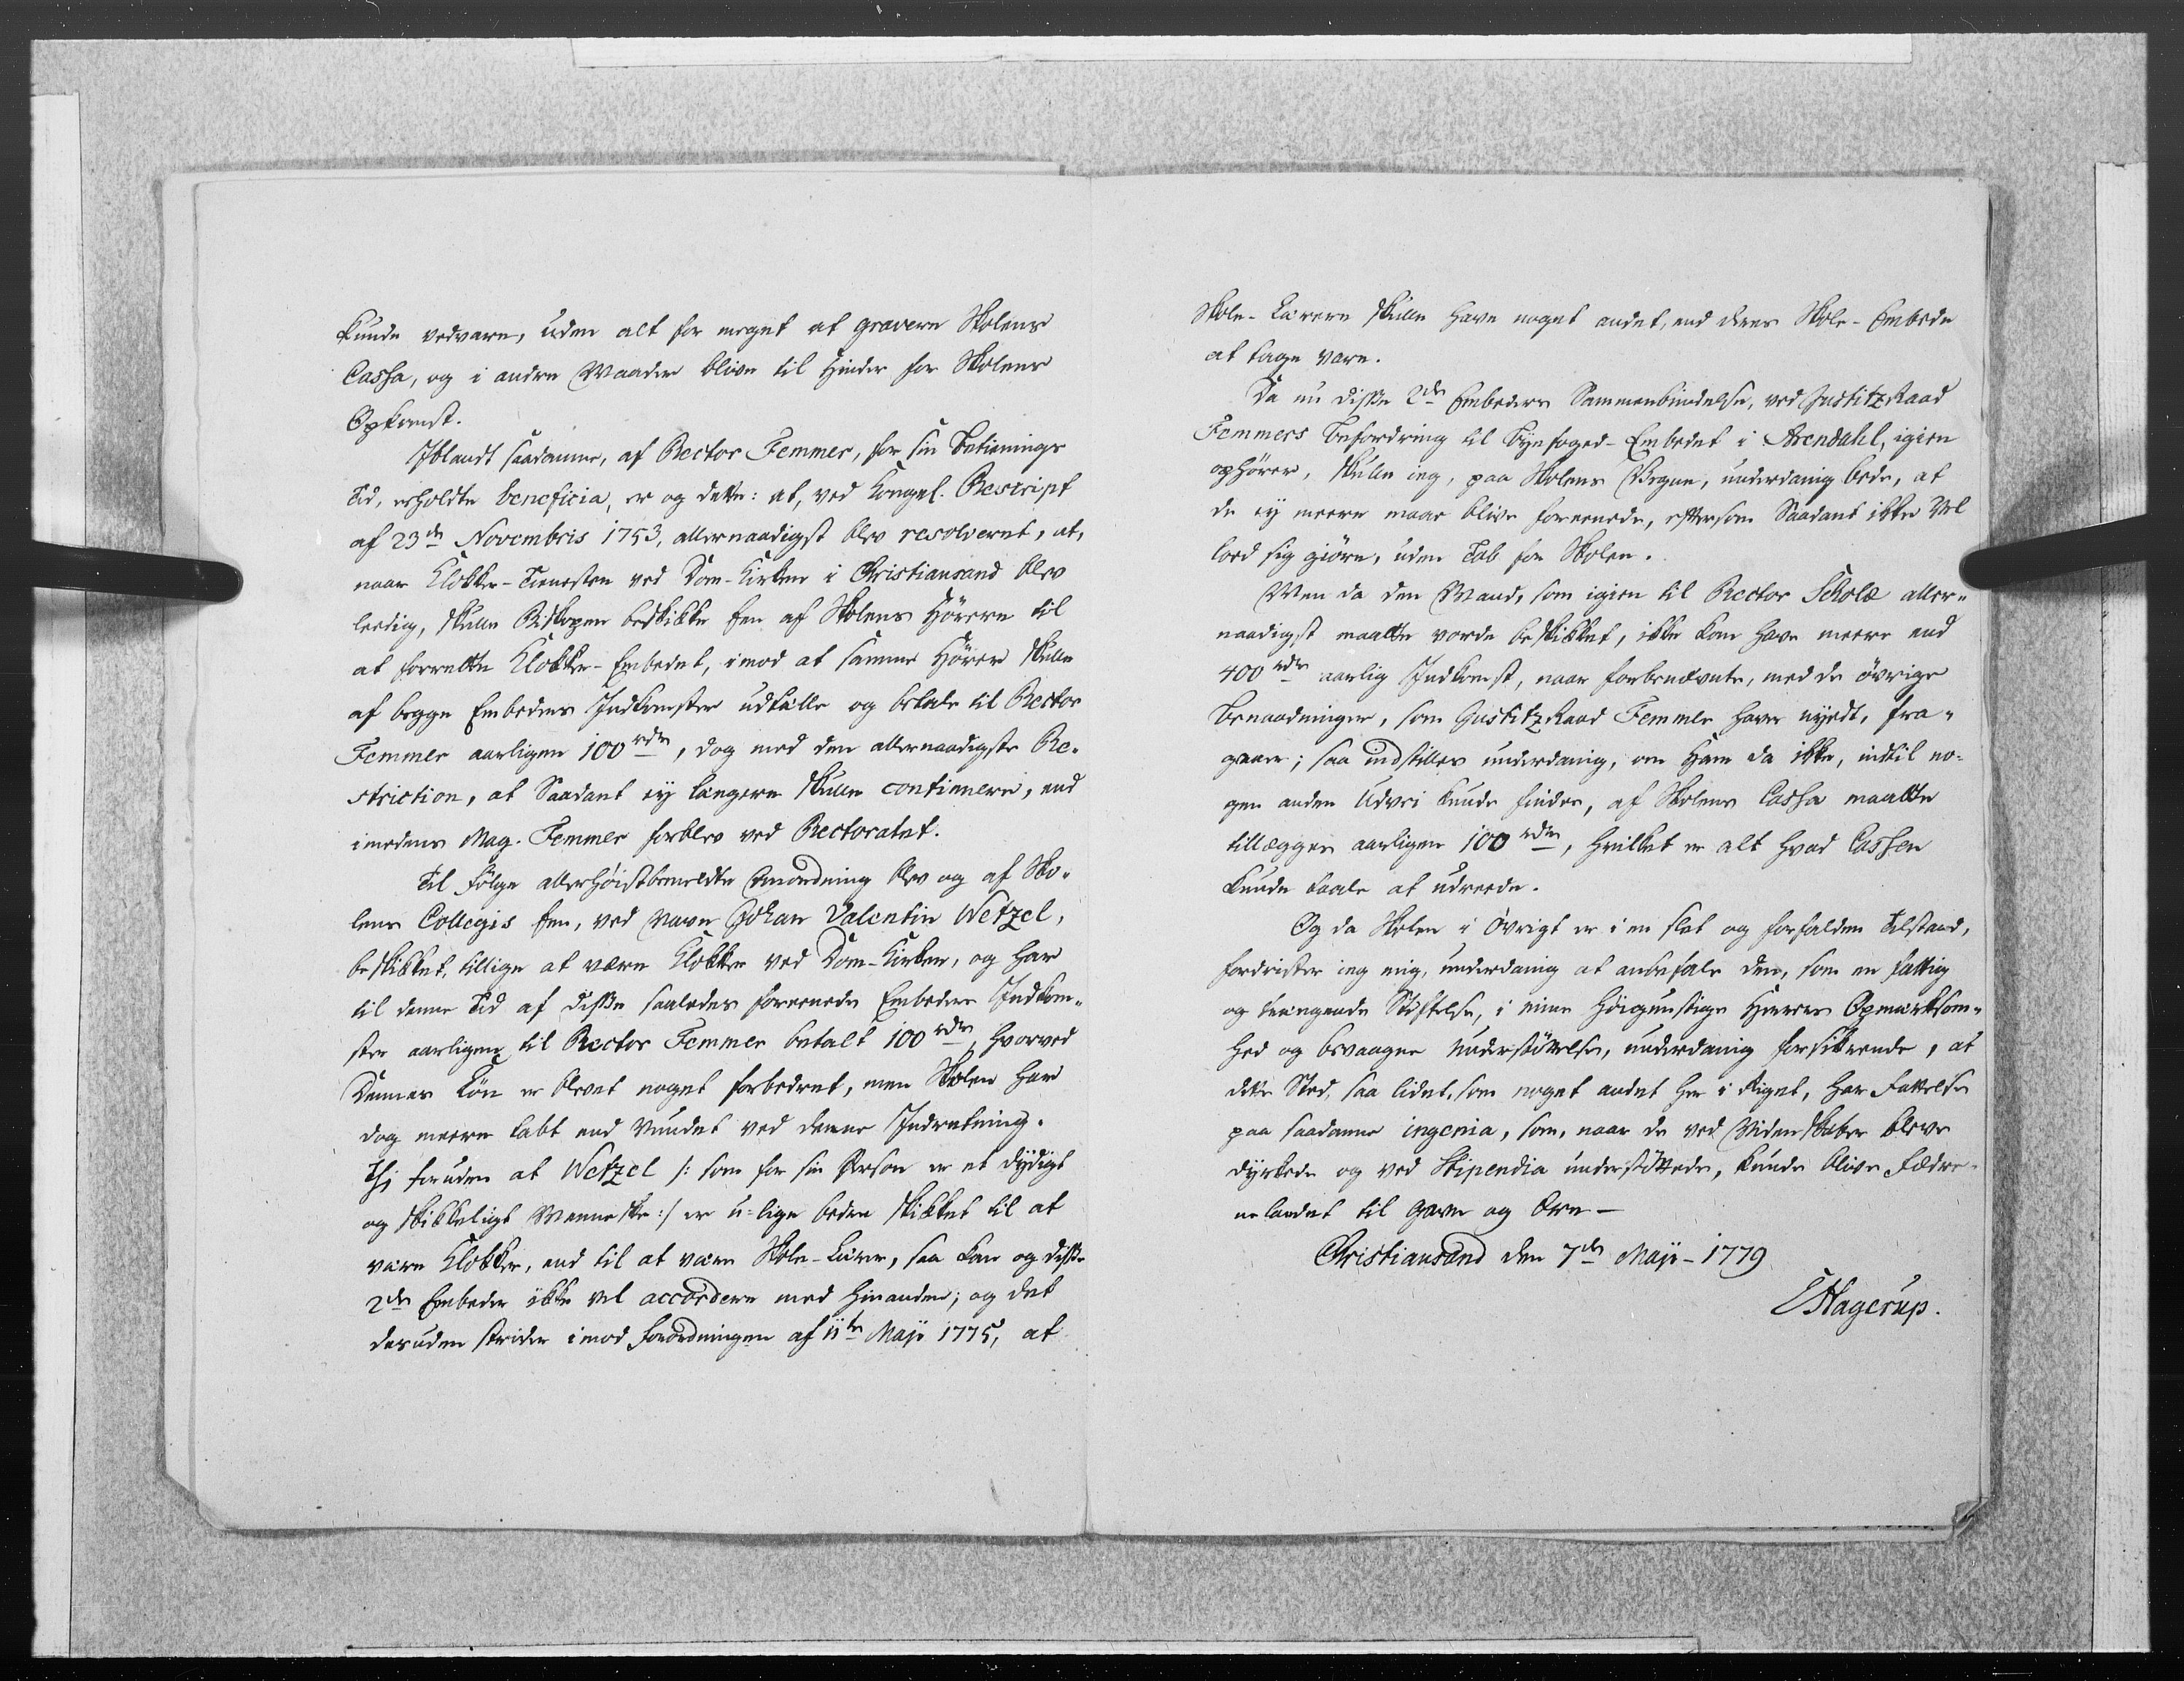 kunde vedvare, uden alt for meget at gravere Skolens
Cassa, og i andre Maader blive til Hinder for Skolens
Opkomst.
Iblandt saadanne, af Rector Femmer, for sin Betienings
Tid, erholdte beneficia, er og dette: at, ved Kongel. Rescript
af 23de Novembris 1753, allernaadigst blev resolveret, at,
naar Klokker-Tienesten ved Dom-Kirken i Christiansand blev
leedig, skulle Biskopen beskikke Een af Skolens Hörere til
at forrette Klokker-Embedet, imod at samme Hörer skulle
af begge Embeders Indkomster udtælle og betale til Rector
Femmer aarligen 100 rdr, dog med den allernaadigste Re-
striction, at Saadant ey længere skulle continuere, end
imedens Mag. Femmer forblev ved Rectoratet.
Til Fölge allerhöistbemeldte Anordning blev og af Sko-
lens Collegis Een, ved Navn Johan Valentin Wetzel,
beskikket, tillige at være Klokker ved Dom-Kirken, og har
til denne Tid af disse saaledes foreenede Embeders Indkom-
ster aarligen til Rector Femmer betalt 100 rdr, hvorved
Dennes Lön er blevet noget forbedret, men Skolen har
dog meere tabt end vundet ved denne Indretning.
Thi foruden at Wetzel /: som for sin Person er et dydigt
og skikkeligt Menneske :/ er u-lige bedre skikket til at
være Klokker, end til at være Skole-Lærer, saa kan og disse
2de Embeder ikke vel accordere med hinanden; og det
desuden strider imod Forordningen af 11te Maji 1775, at
Skole-Lærere skulle have noget andet, end deres Skole-Embede
at tage vare.
Da nu disse 2de Embeders Sammenbindelse, ved JustitzRaad
Femmers Befordring til Byefoged-Embedet i Arendahl, igien
ophörer, skulle ieg, paa Skolens Vegne, underdanig bede, at
de ey meere maae blive foreenede, eftersom Saadant ikke vel
lod sig giöre, uden Tab for Skolen.
Men da den Mand, som igien til Rector Scholæ aller-
naadigst maatte vorde beskikket, ikke kan have meere end
400 rdr aarlig Indkomst, naar forbenævnte, med de övrige
Benaadninger, som JustitzRaad Femmer haver nydt, fra-
gaaer; saa indstilles underdanig, om Ham da ikke, indtil no-
gen anden Udvei kunde findes, af Skolens Cassa maatte
tillægges aarligen 100 rdr, hvilket er alt hvad Cassen
kunde taale at udreede.
Og da Skolen i Övrigt er i en slet og forfalden Tilstand,
fordrister ieg mig, underdanig at anbefale den, som en fattig
og trængende Stiftelse, i mine Höigunstige Herrers Opmærksom-
hed og bevaagne Understöttelse, underdanig forsikrende, at
dette Sted, saa lidet, som noget andet her i Riget, har Fattelse
paa saadanne ingenia, som, naar de ved Videnskaber bleve
dyrkede og ved Stipendia understöttede, kunde blive Fædre-
nelandet til Gavn og Ære —
Christiansand den 7de Maji - 1779
E Hagerup.